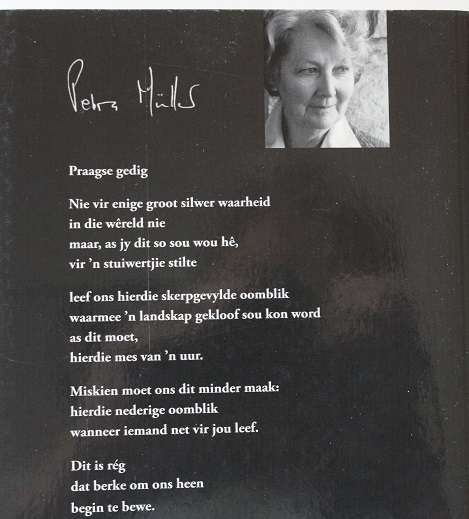 Petra Müller
Praagse gedig
Nie vir enige groot silwer waarheid
in die wêreld nie
maar, as jy dit so sou wou hê,
vir 'n stuiwertjie stilte
leef ons hierdie skerpgevylde oomblik
waarmee 'n landskap gekloof sou kon word
as dit moet,
hierdie mes van 'n uur.
Miskien moet ons dit minder maak:
hierdie nederige oomblik
wanneer iemand net vir jou leef.
Dit is rég
dat berke om ons heen
begin te bewe.